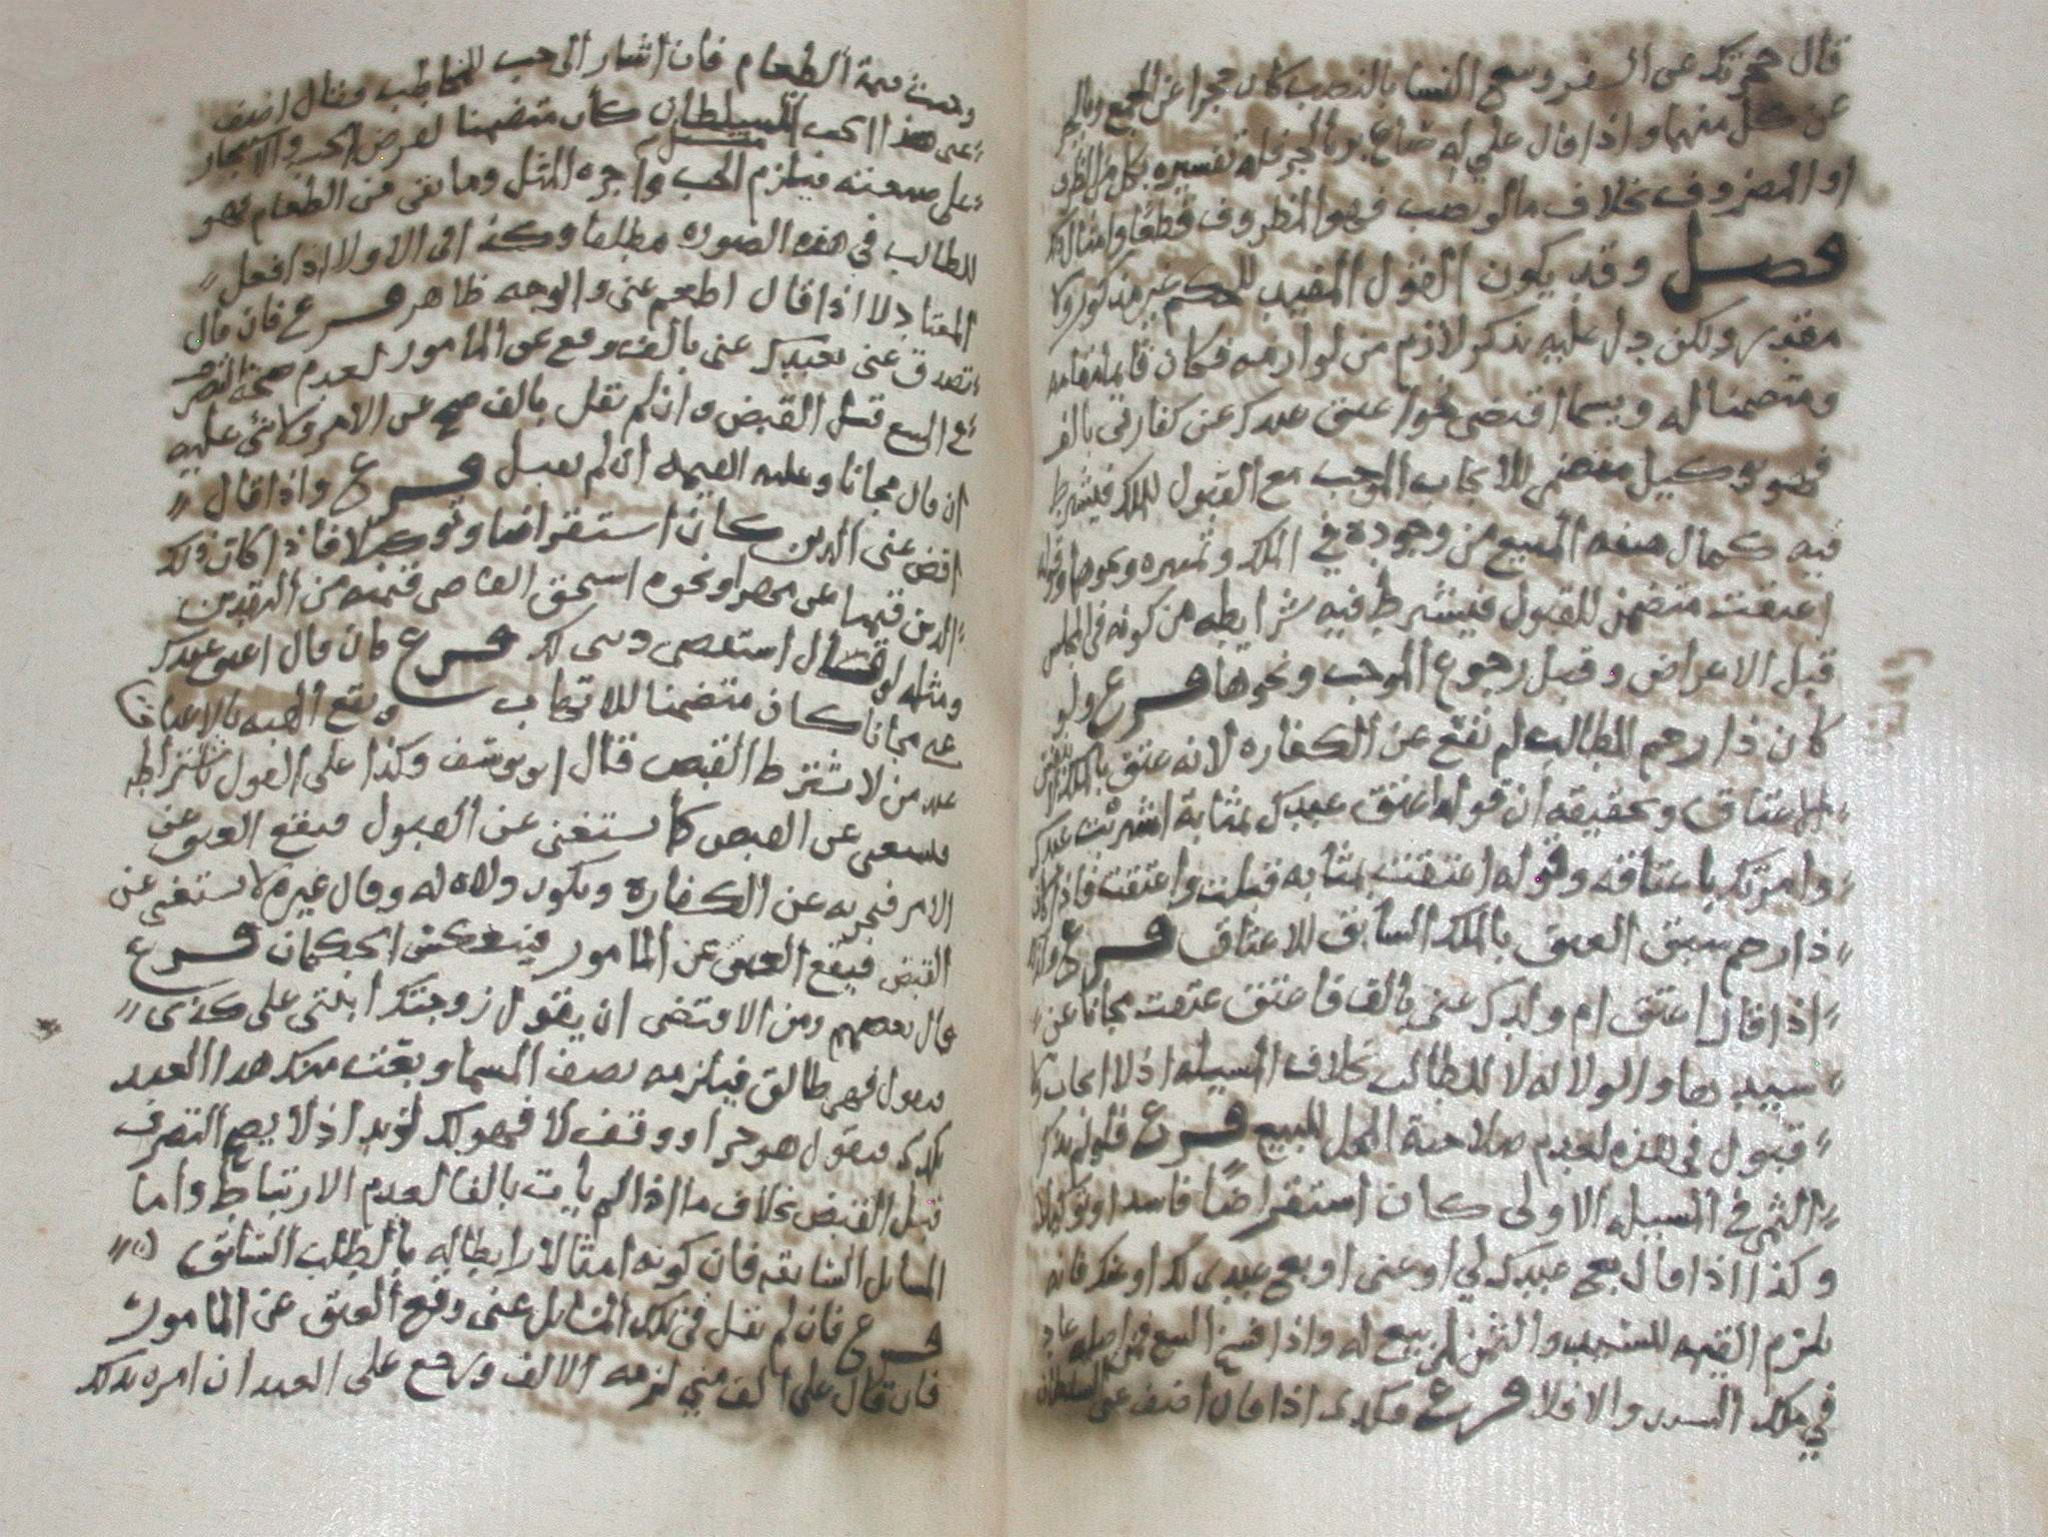 قال حجرتك عن السفر وسع النسا بالنصب كان حجرا عن الجمع وبالجر
عن كل منهما واذا قال علي له صاع بر بالجر فله تفسيره بكل من الظرف
او المضروف بخلاف ما لو نصب فهو المظروف قطعا وامثال ذلك
فصل وقد يكون القول المفيد للحكم غير مذكور ولا
مقدر ولكن دل عليه بذكر لازم من لوازمه فكان قائما مقامه
ومتضمنا له ويسما اقتضى نحو اعتق عبدك عن كفارتي بالف
فهو توكيل متضمن للايجاب الموجب مع القبول للملك فيشترط
فيه كمال صفه المبيع من وجوده في الملك وتميزه ونحوها وقوله
اعتقت متضمن للقبول فيشترط فيه شرايطه من كونه في المجلس
قبل الاعراض وقبل رجوع الموجب ونحوها فرع ولو
كان ذا رحم للطالب لم يقع عن الكفاره لانه عتق بالملك لا
الاعتاق وتحقيقه ان قوله اعتق عبدك بمثابة اشتريت عبدك
وامرتك باعتاقه وقوله اعتقت بمثابه قبلت واعتقت فاذا كان
ذا رحم سبق العتق بالملك السابق للاعتاق فرع
اذا قال اعتق ام ولدك عني بالف فاعتق عتقت مجانا عن
سيدها والولا له لا للطالب بخلاف المسيله اذ لا ايجاب ولا
قبول في هذه لعدم صلاحية المحل للبيع فرع فلو لم يذكر
الثمن في المسيله الاولى كان استقراضا فاسدا وتوكيلا
وكذا اذا قال بع عبدك لي او عني او بع عبدي لك او عنك فانه
يلزم القيمه للسيد والثمن لمن بيع له واذا فسخ البيع من اصله عاد
في ملك السيد والا فلا فرع وكذى اذا قال اضف عني السلطان
وهبت قيمة الطعام فان اشار الى حب للمخاطب فقال اضف
عني هذا الحب السلطان كان متضمنا لقرض الحب والاستيجار
على صنعته فيلزم الحب واجره المثل وما بقي من الطعام فهو
للطالب في هذه الصوره مطلقا وكذا في الاولا اذا فعل
المعتاد لا اذا قال اطعم عني والوجه ظاهر فرع فان قال
تصدق عني بعبدك عني بالف وقع عن المامور لعدم صحة التصرف
في البيع قبل القبض وان لم يقل بالف صح عن الامر ولا شي عليه
ان قال مجانا وعليه القيمه ان لم يقبل فرع واذا قال
اقض عني الدين كان استقراضا وتوكيلا فاذا كان ذلك
الدين قيميا عن مهر او نحوه استحق القاضي قيمته من النقدين
ومثله لو قال استقضى ديني لك فرع فان قال اعتق عبدك
عني مجانا كان متضمنا للاتهاب ويقع الهبه بالاعتاق
عند من لا يشترط القبض قال ابو يوسف وكذا على القول باشتراطه
يستغنى عن القبض كما يستغنى عن القبول فيقع العتق عن
الامر فيجزيه عن الكفاره ويكون ولاه له وقال غيره لا يستغنى عن
القبض فيقع العتق عن المامور فينعكس الحكمان فرع
قال بعضهم ومن الاقتضى ان يقول زوجتك ابنتي على كذى
فيقول فهي طالق فيلزمه نصف المسما وبعت منك هذا العبد
بكذى فيقول هو حر او وقف لا فهو لك لزيد اذ لا يصح التصرف
قبل القبض بخلاف ما اذا لم يأت بالفا لعدم الارتباط واما
المسايل السابقه فان كونه امتثالا رابطا له بالطلب السابق
فرع فان لم يقل في تلك المسايل عني وقع العتق عن المامور
فان قال على الف مني لزمه الالف ويرجع على العبد ان امره بذلك